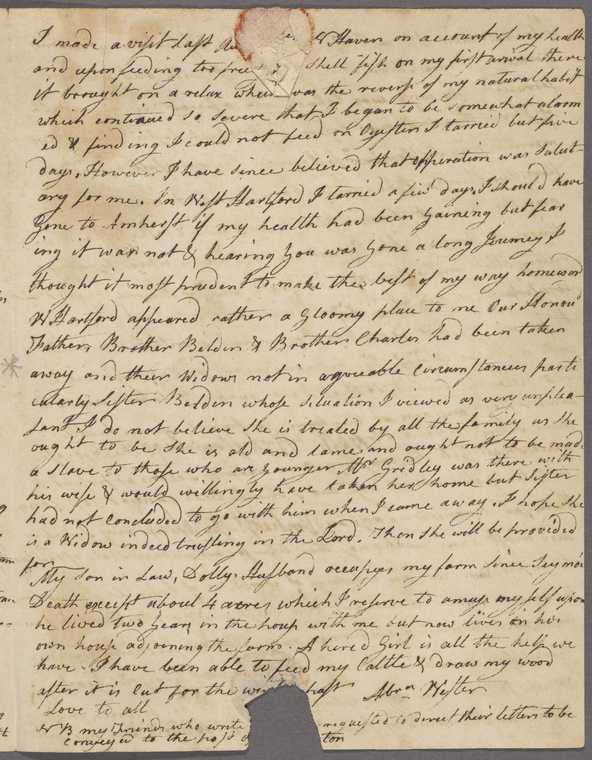 I made a visit last N Haven on account of my health
and upon feeding too free shell fish on my first arival there
it brought on a relax which was the revers of my natural habit
which continued so severe that I began to be somewhat alarm
ed & finding I could not feed on Oysters I tarried but five
days, However I have since believed that opperation was salub-
ary for me. In West Hartford I tarried a few days, I should have
gone to Amherst if my health had been gaining but fear
ing it was not & hearing you was gone a long Journey, I
thought it most prudent to make the best of my way homeward
W Hartford appeared rather a gloomy place to me Our Honoud
Father, Brother Belden & Brother Charles had been taken
away and their Widows not in agreeable Circumstances parti
cularly Sister Belden whose situation I viewed as very unplea-
sant I do not believe she is treated by all the family as she
ought to be she is old and lame and ought not to be made
a slave to those who are younger Mr Gridley was there with
his wife & would willingly have taken her home but Sister
had not concluded to go with him when I came away. I hope she
is a Widow indeed trusting in the Lord. Then she will be provided
for
My Son in Law, Dollys Husband occupyes my farm since
Death except about 4 acres which I reserve to amuse my self upon
he lived two years in the house with me but now lives in his
own house adjoining the farm. A hered Girl is all the help we
have. I have been able to feed my Cattle & draw my wood
after it is Cut for the past Abrm Webster
Love to all
N B my Friends who write requested to direct their letters to be
conveyed to the post ton